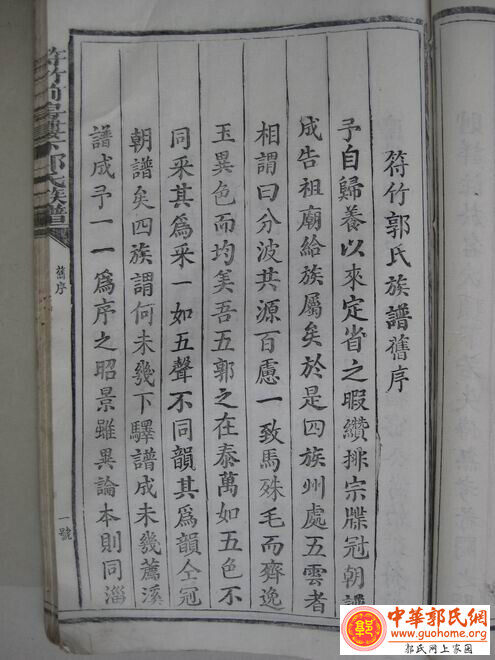 符竹郭氏族譜舊序
予自歸養以來定省之暇纘排宗牒冠朝譜
成告祖廟給族屬矣於是四族州處五雲者
相謂曰分波共源百慮一致馬殊毛而齊逸
玉異色而均美吾五郭之在泰萬如五色不
同采其爲采一如五聲不同韻其爲韻仝冠
朝譜矣四族謂何未幾下驛譜成未幾薦溪
譜成予一一爲序之昭景雖異論本則同淄
符竹 郭氏族譜
舊序
一號
中華郭氏網
www.guohome.org
郭氏网上家園